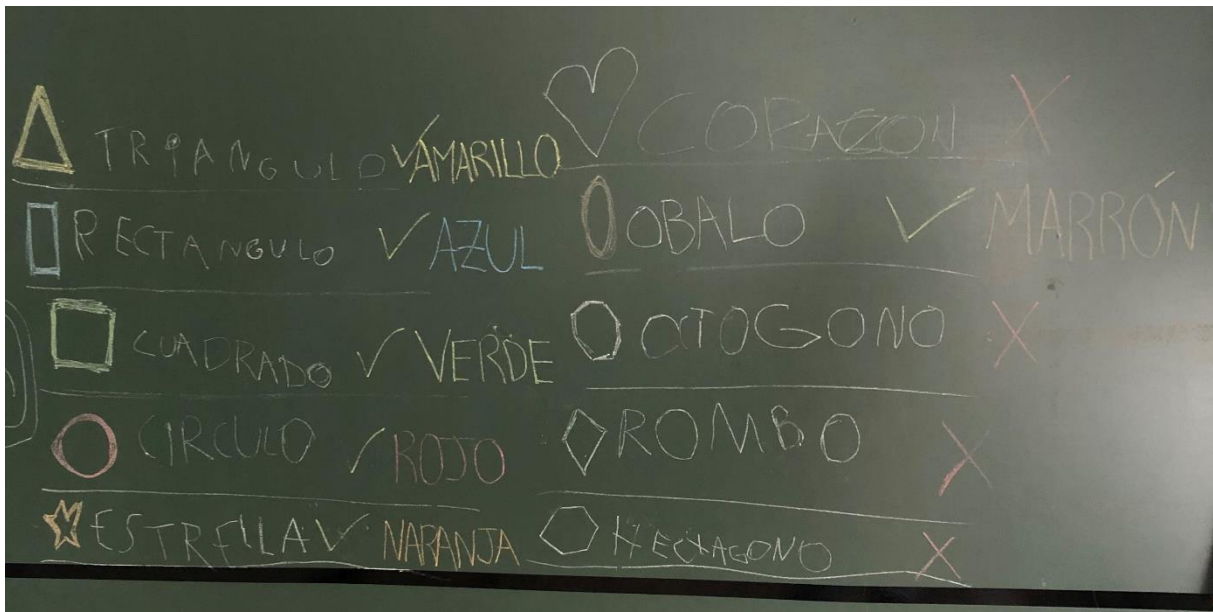 TRIANGULO ✓ AMARILLO
RECTANGULO ✓ AZUL
CUADRADO ✓ VERDE
CIRCULO ✓ ROJO
ESTRELLA ✓ NARANJA
CORAZON X
OBALO ✓ MARRÓN
OCTOGONO X
ROMBO X
HECTAGONO X